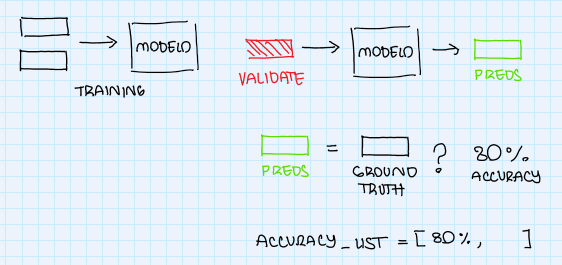 MODELO
TRAINING
VALIDATE
MODELO
PREDS
PREDS = GROUND TRUTH ? 80% ACCURACY
ACCURACY_LIST = [ 80%, ]